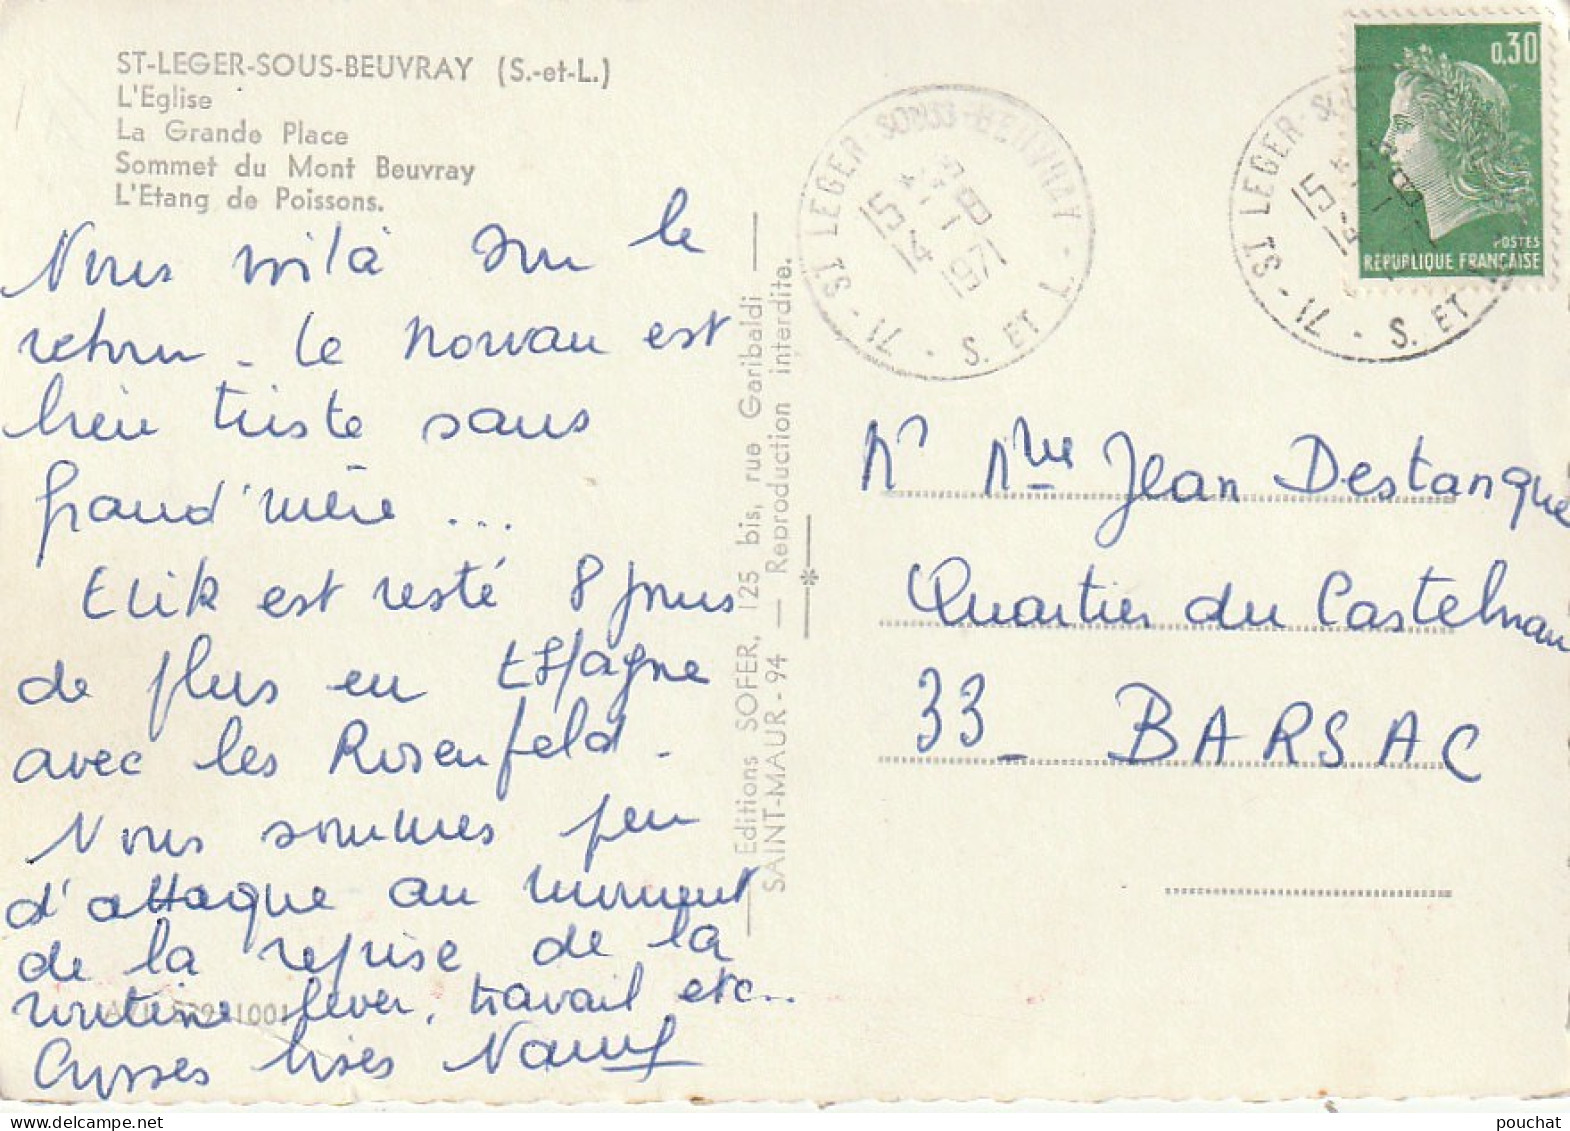 ST-LEGER-SOUS-BEUVRAY (S.-et-L.)
L'Eglise
La Grande Place
Sommet du Mont Beuvray
L'Etang de Poissons.
Nous voilà sur le
retour - Le Morvan est
bien triste sans
grand'mère ...
Erik est resté 8 jours
de plus en Espagne
avec les Rosenfeld.
Nous sommes peu
d'attaque au moment
de la reprise de la
routine lever, travail etc...
Grosses bises
Editions SOFER, 125 bis, rue Garibaldi
SAINT-MAUR - 94 — Reproduction interdite.
71 - ST LEGER-SOUS-BEUVRAY - S. ET L.
15 H
14 - 8
1971
0,30
POSTES
RÉPUBLIQUE FRANÇAISE
71 - ST LEGER-S
S. ET
Mr Mme Jean Destanque
Quartier du Castelnau
33 - BARSAC
pouchat